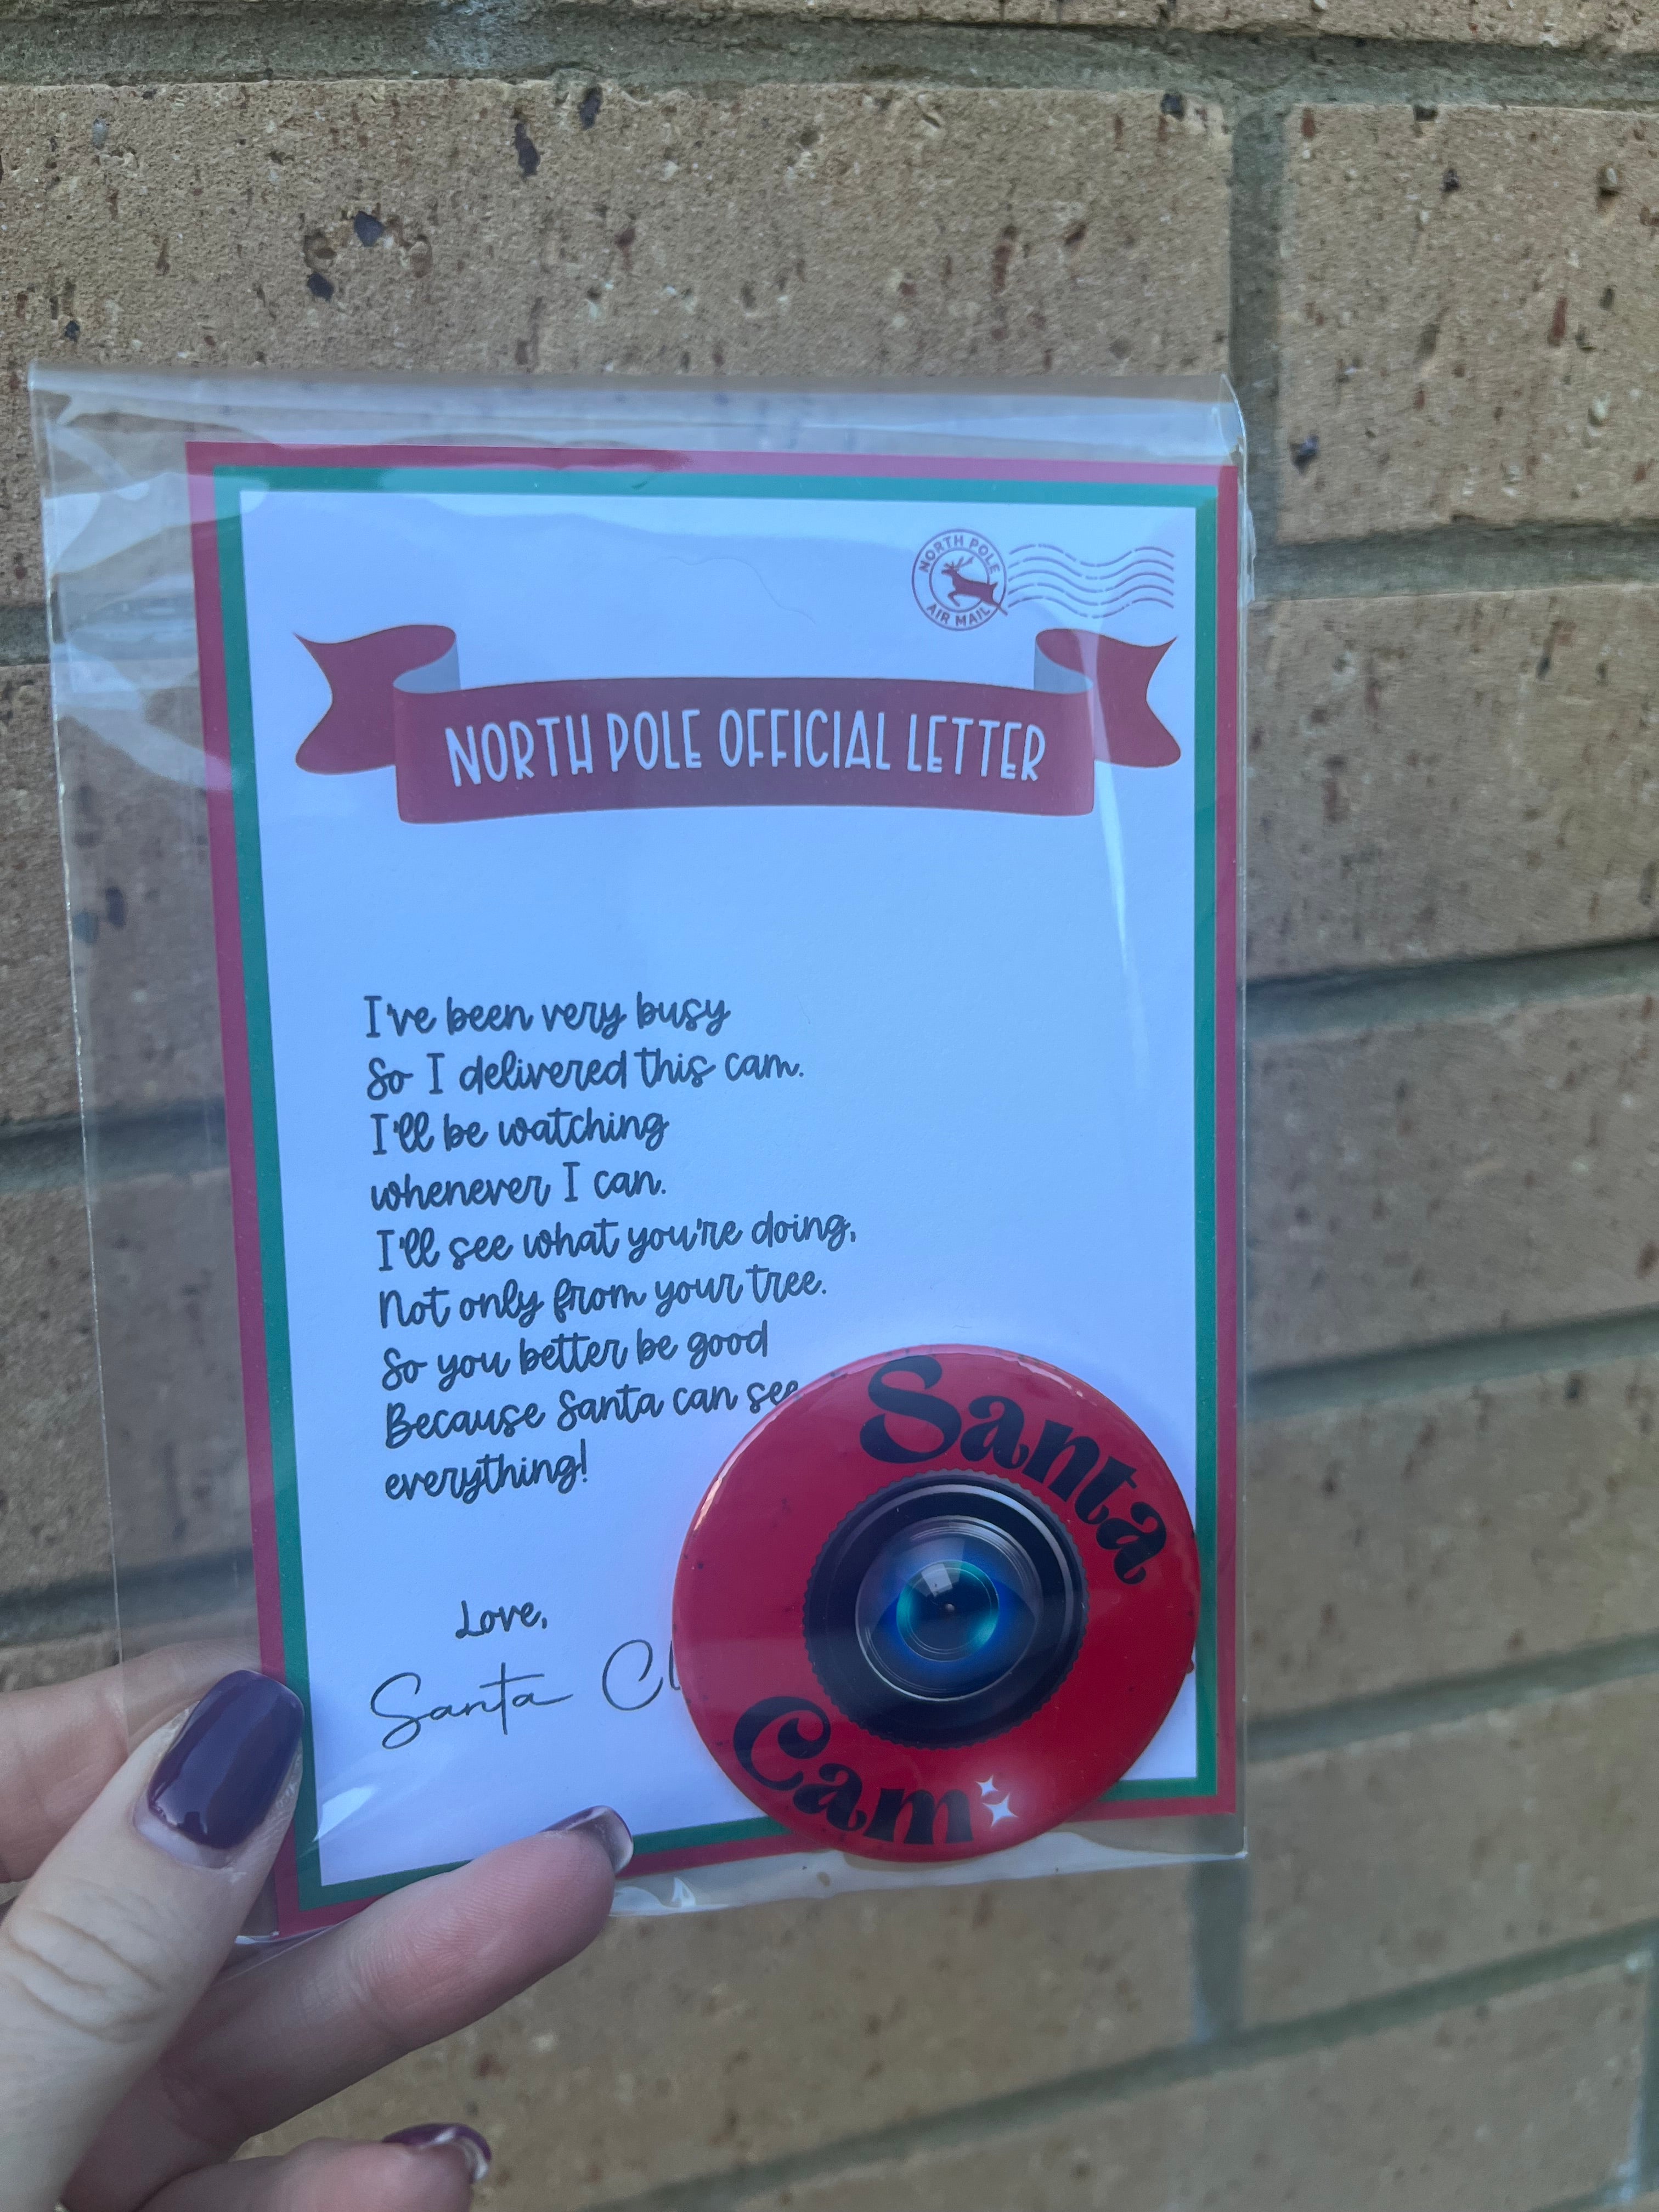 NORTH POLE
AIR MAIL
NORTH POLE OFFICIAL LETTER
I've been very busy
So I delivered this cam.
I'll be watching
whenever I can.
I'll see what you're doing,
Not only from your tree.
So you better be good
Because Santa can see
everything!
Love,
Santa Cl
Santa
Cam